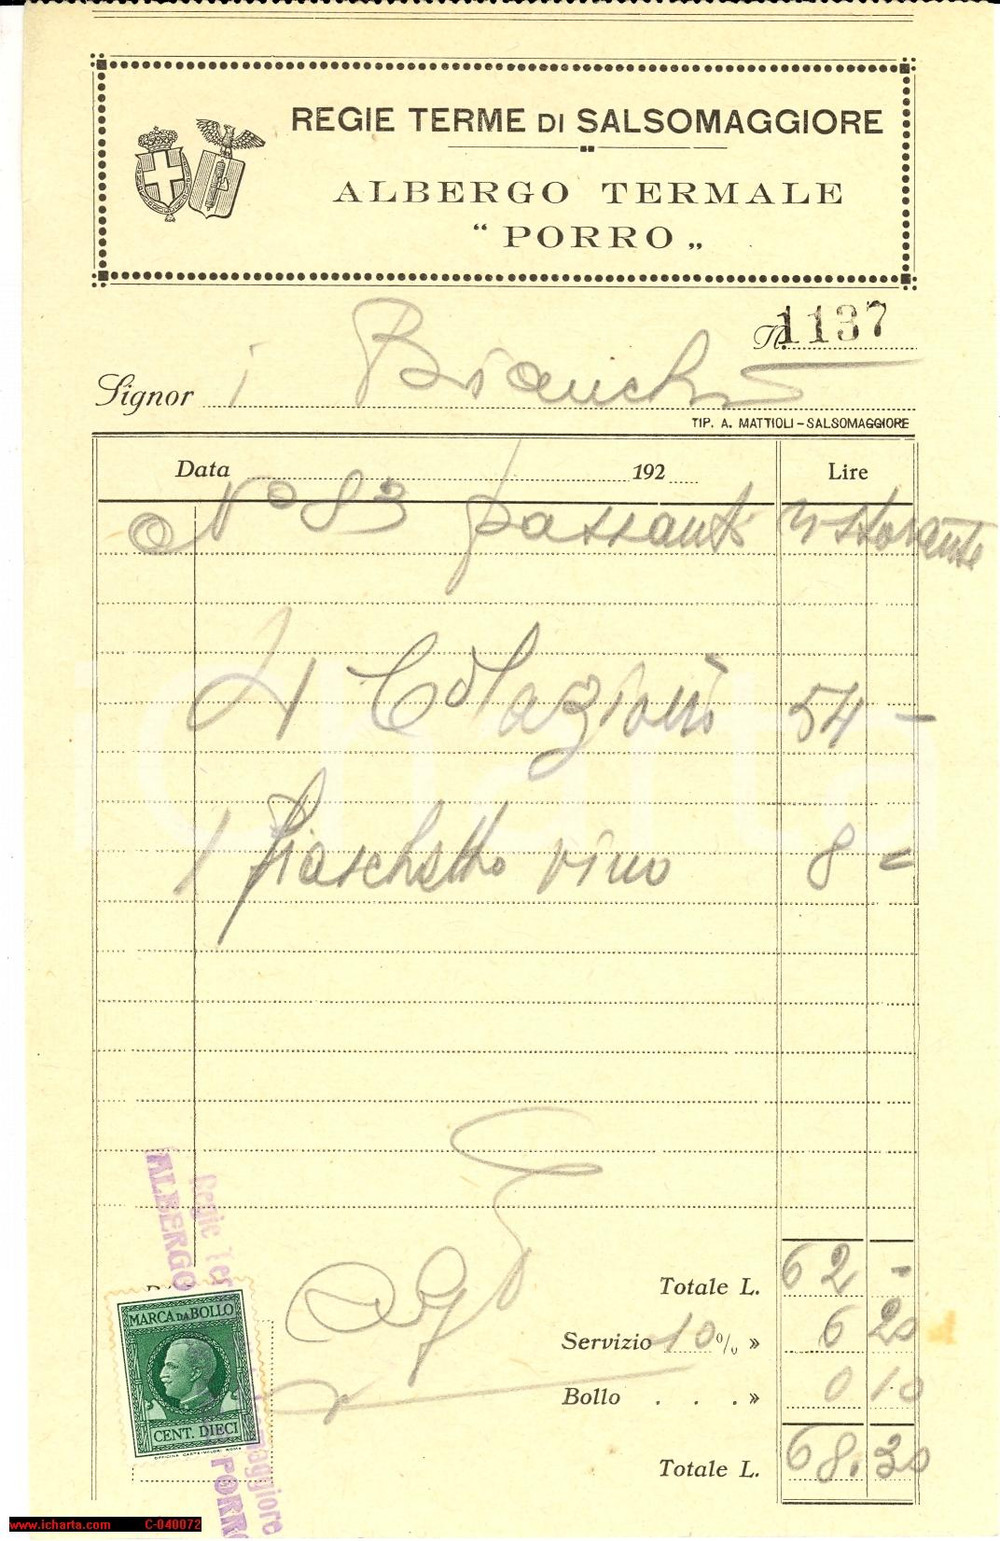 REGIE TERME DI SALSOMAGGIORE
ALBERGO TERMALE
“ PORRO „
N. 1137
Signor i Bianchi
TIP. A. MATTIOLI - SALSOMAGGIORE
Data 192 Lire
No 83 passanti ristorante
4 Colazioni 54 -
1 fiaschetto vino 8 =
Totale L. 62 -
Servizio 10 % » 6 20
Bollo . . . » 0 10
Totale L. 68.30
Regie Ter maggiore
ALBERGO PORRO
MARCA DA BOLLO
CENT. DIECI
icharta
www.icharta.com C-040072